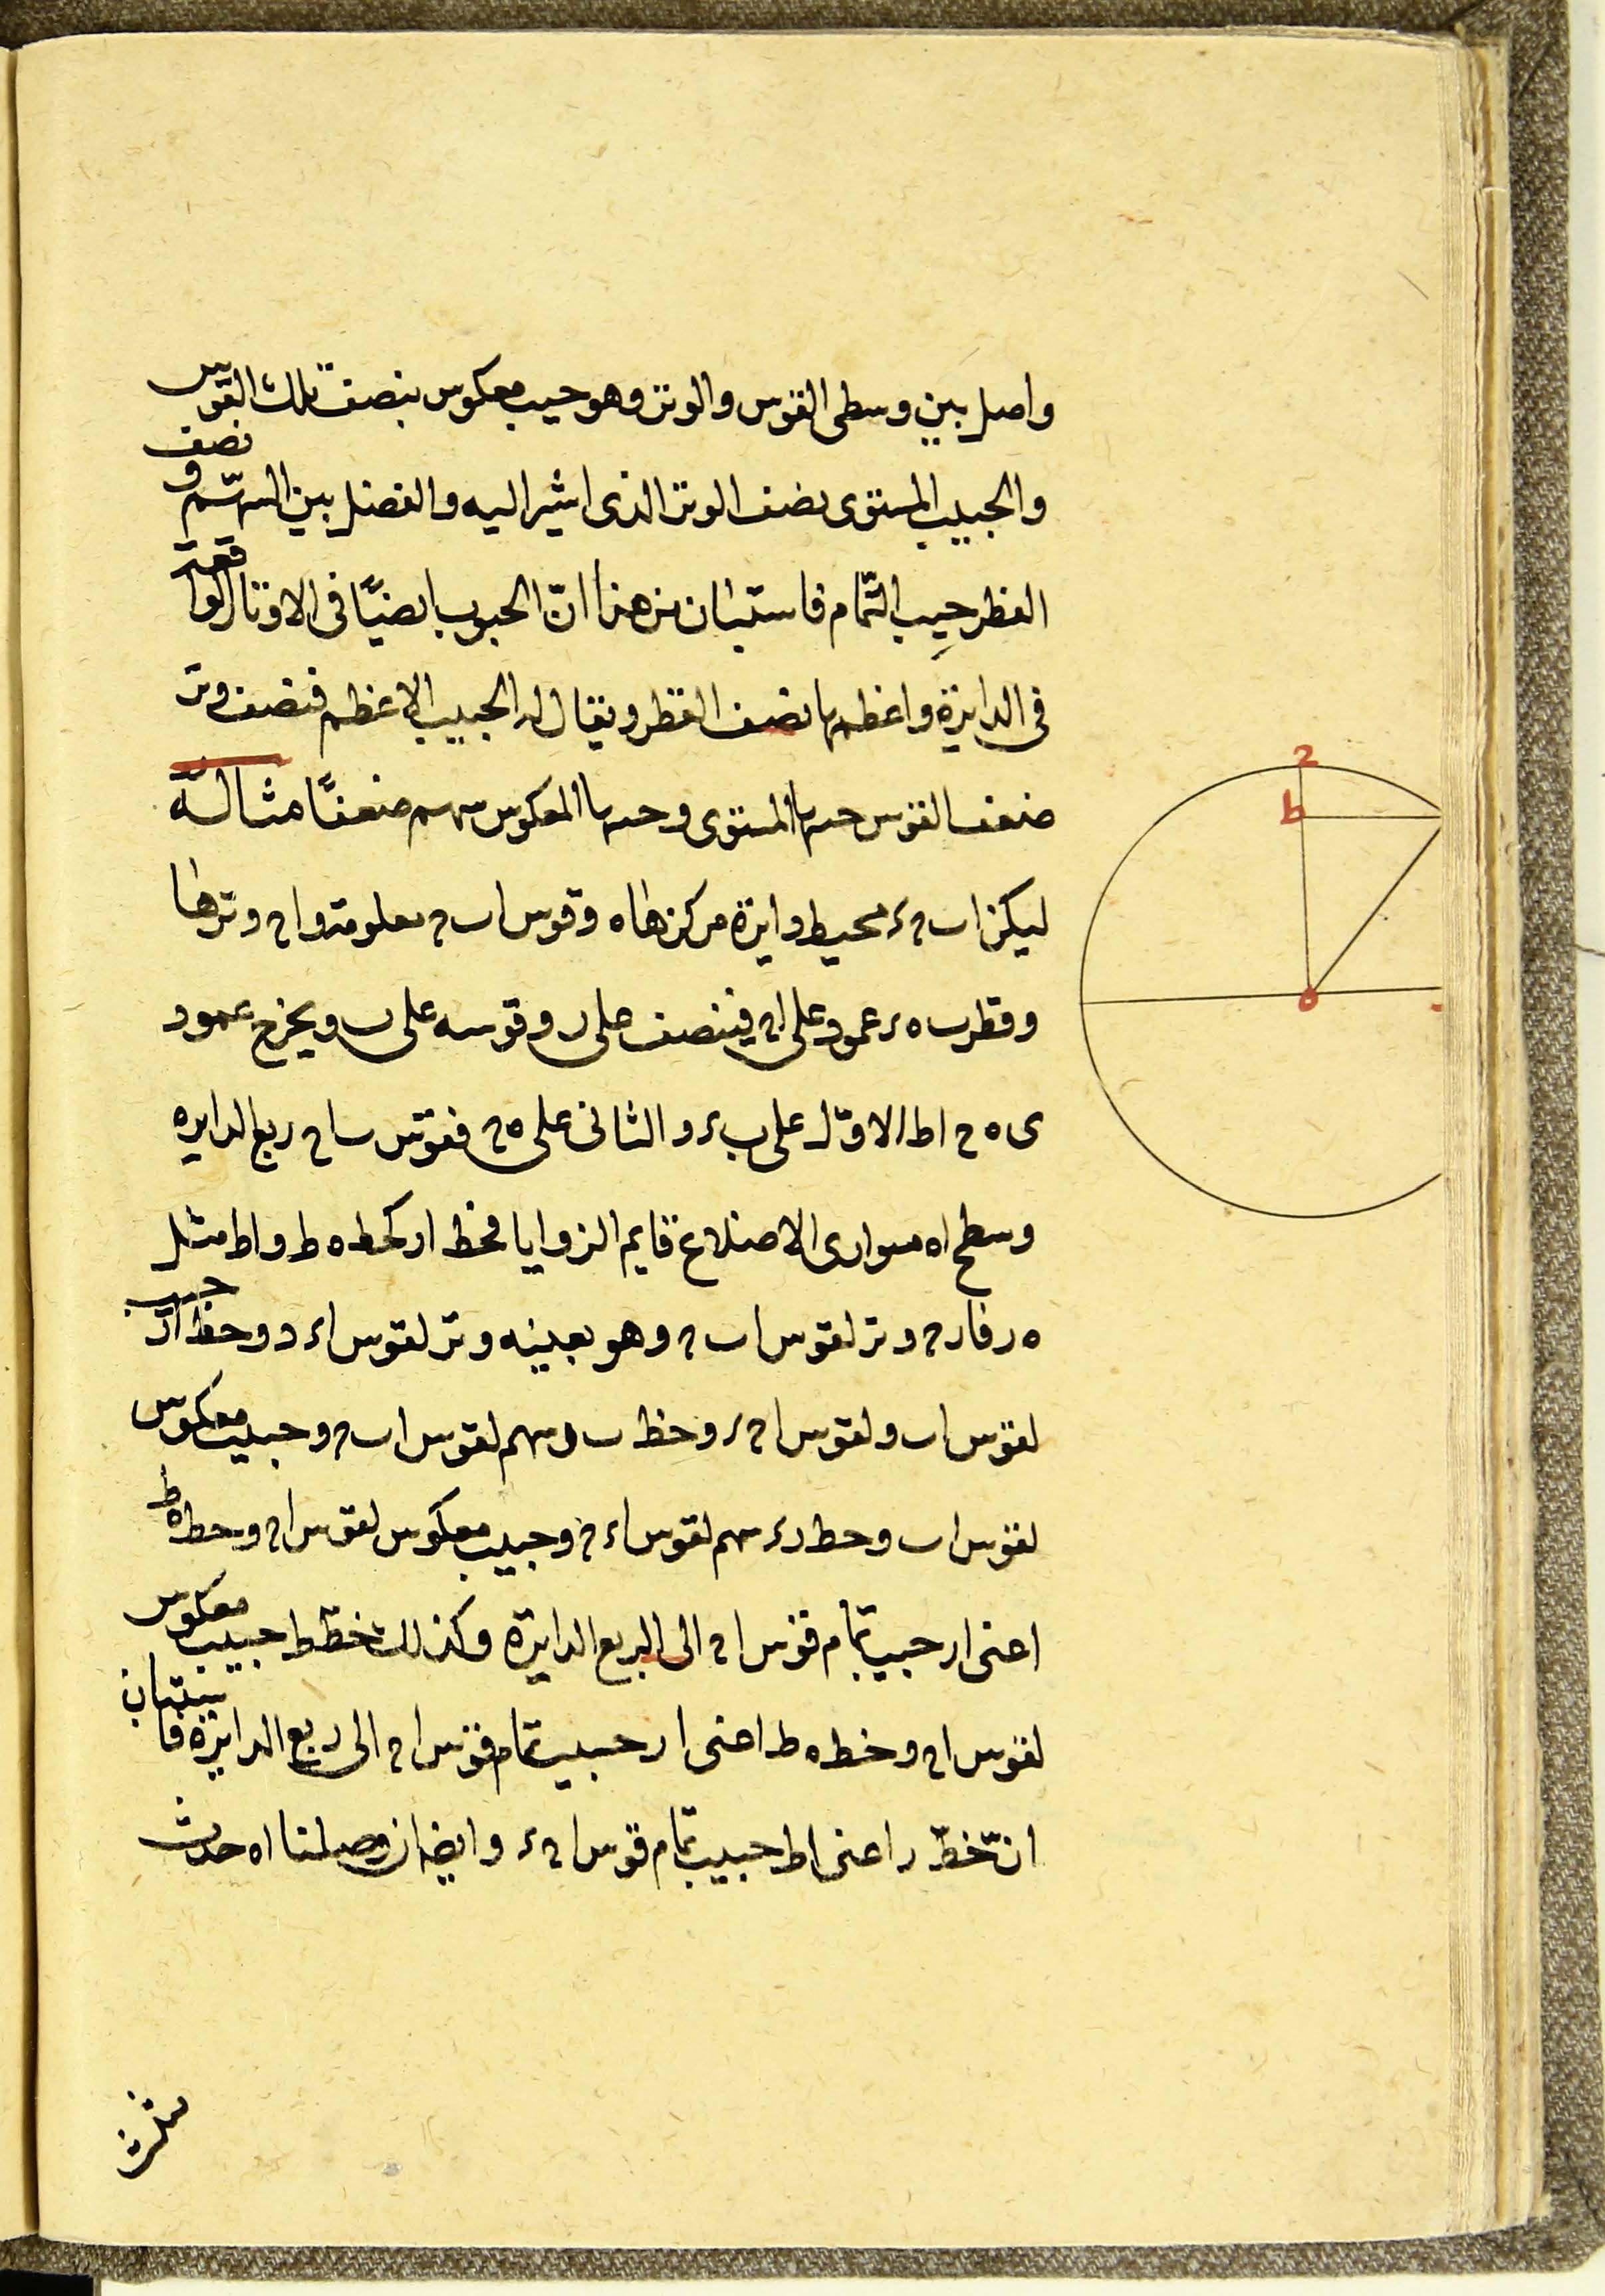 واصل بين وسطى القوس والوتر وهو جيب معكوس بنصف تلك القوس
والجيب المستوى نصف الوتر الذى اشير اليه والفضل بين السهم و نصف
القطر جيب التمام فاستبان من هذا انّ الجيوب ايضًا فى الاوتار الواقعة
فى الدايرة واعظمها نصف القطر ويقال له الجيب الاعظم فنصف وتر
ضعف القوس جيبها المستوى وجيبها المعكوس سهم ضعفها مثاله
ليكن اب ح ء محيط دايرة مركزها ه وقوس اب ح معلومة و ا ح وترها
وقطر ب ه ء عمود على ا ح فينصف على ر وقوسه على ب ويخرج عمود
ى ه ح اط الاوّل على ب ء والثانى على ه ح فقوس ب ا ح ربع الدايره
وسطح اه موازى الاضلاع قايم الزوايا فخط ار كخط ه ط و اط مثل
ه ر فار ح وتر لقوس اب ح وهو بعينه وتر لقوس اء د وخط ار جيب
لقوس اب ولقوس ا ح ء وخط ب ر سهم لقوس اب ح وجيب معكوس
لقوس اب وخط ر ء سهم لقوس اء ح وجيب معكوس لقوس ا ح وخط ه ط
اعنى ار جيب تمام قوس ا ح الى الربع الدايرة وكذلك خط ط ا جيب معكوس
لقوس ا ح وخط ه ط اعنى ار جيب تمام قوس ا ح الى ربع الدايرة فاستبان
انّ خطّ ر اعنى اط جيب تمام قوس ا ح ء وايضا ان وصلنا اه حدث
مثلث
ح
ط
ه